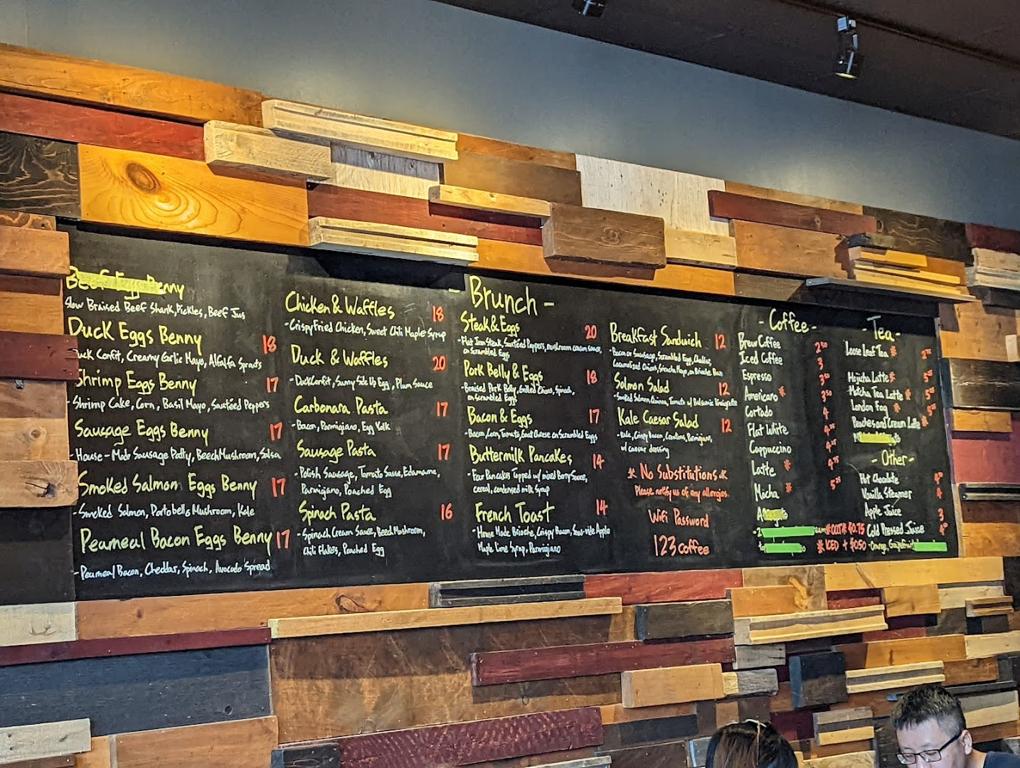 Beef Eggs Benny
Slow Braised Beef Shank, Pickles, Beef Jus
Duck Eggs Benny 18
Duck Confit, Creamy Garlic Mayo, Alfalfa Sprouts
Shrimp Eggs Benny 17
- Shrimp Cake, Corn, Basil Mayo, Sautéed Peppers
Sausage Eggs Benny 17
House-Made Sausage Patty, Beech Mushroom, Salsa
Smoked Salmon Eggs Benny 17
- Smoked Salmon, Portobello Mushroom, Kale
Peameal Bacon Eggs Benny 17
- Peameal Bacon, Cheddar, Spinach, Avocado Spread
Chicken & Waffles 18
- Crispy Fried Chicken, Sweet Chili Maple Syrup
Duck & Waffles 20
- Duck Confit, Sunny Side Up Egg, Plum Sauce
Carbonara Pasta 17
- Bacon, Parmigiano, Egg Yolk
Sausage Pasta 17
- Polish Sausage, Tomato Sauce, Edamame,
Parmigiano, Poached Egg
Spinach Pasta 16
- Spinach Cream Sauce, Beech Mushroom,
Chili Flakes, Poached Egg
- Brunch -
Steak & Eggs 20
- Flat Iron Steak, Sautéed Peppers, mushroom cream sauce,
on Scrambled Eggs
Pork Belly & Eggs 18
- Braised Pork Belly, Grilled Onions, Spinach,
on Scrambled Eggs
Bacon & Eggs 17
- Bacon, Corn, Tomato, Goat Cheese on Scrambled Eggs
Buttermilk Pancakes 14
- Four Pancakes Topped w/ mixed Berry Sauce,
cereal, condensed milk Syrup
French Toast 14
- Home Made Brioche, Crispy Bacon,
Maple Syrup, Parmigiano
Breakfast Sandwich 12
Bacon or Sausage, Scrambled Egg, Cheddar,
Caramelized Onions,
Salmon Salad 12
- Smoked Salmon, Quinoa, Tomato w/ Balsamic Vinaigrette
Kale Caesar Salad 12
- Kale, Crispy bacon, Croutons, Parmigiano,
w/ caesar dressing
* No Substitutions *
Please notify us of any allergies.
Wifi Password
123coffee
- Coffee -
Brew Coffee
Iced Coffee 3
Espresso
Americano *
Cortado 4
Flat White
Cappuccino
Latte *
Mocha *
* OAT $0.75
* ICED + $0.50
- Tea -
Loose Leaf Tea *
Hojicha Latte *
Matcha Tea Latte *
London Fog *
Peaches and Cream Latte
- Other -
Hot Chocolate
Vanilla Steamer
Apple Juice 3
Cold Pressed Juice
- Orange, Grapefruit